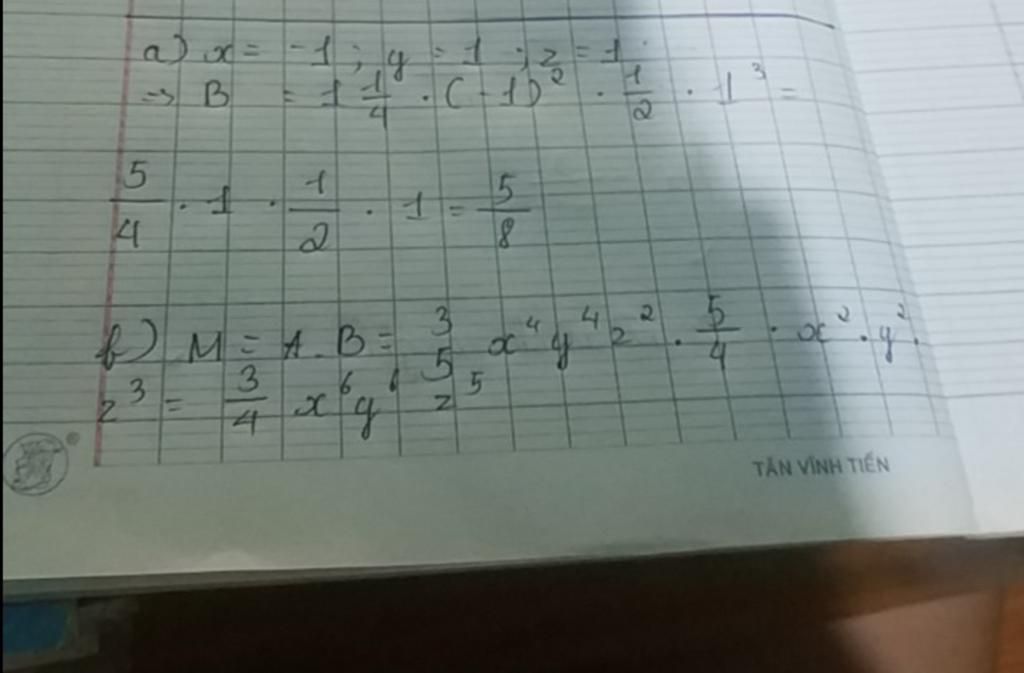 a) x = -1 ; y = 1 ; z = 1
=> B = 1 1/4 . (-1)² . 1/2 . 1³ =
5/4 . 1 . 1/2 . 1 = 5/8
b) M = A . B = 3/5 x⁴ y⁴ z² . 5/4 . x² . y² .
z³ = 3/4 x⁶ y⁶ z⁵
TÂN VĨNH TIẾN
®